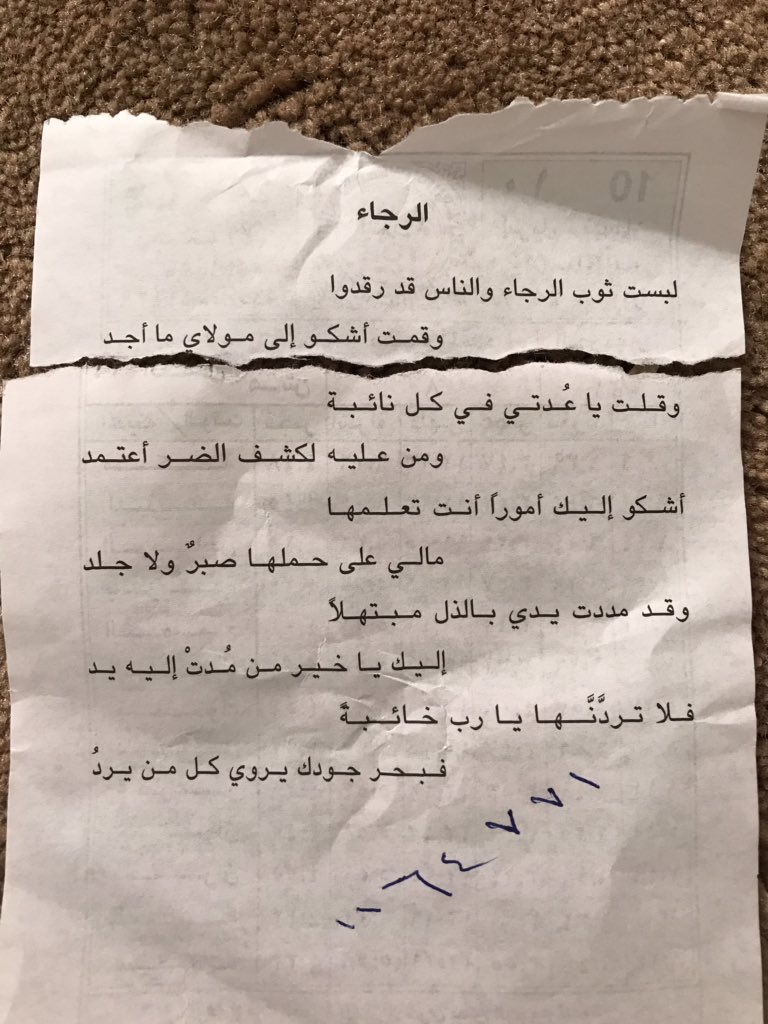 الرجاء
لبست ثوب الرجاء والناس قد رقدوا
وقمت أشكو إلى مولاي ما أجد
وقلت يا عُدتي في كل نائبة
ومن عليه لكشف الضر أعتمد
أشكو إليك أموراً أنت تعلمها
مالي على حملها صبرٌ ولا جلد
وقد مددت يدي بالذل مبتهلاً
إليك يا خير من مُدتْ إليه يد
فلا تردَّنَّها يا رب خائبةً
فبحر جودك يروي كل من يردُ